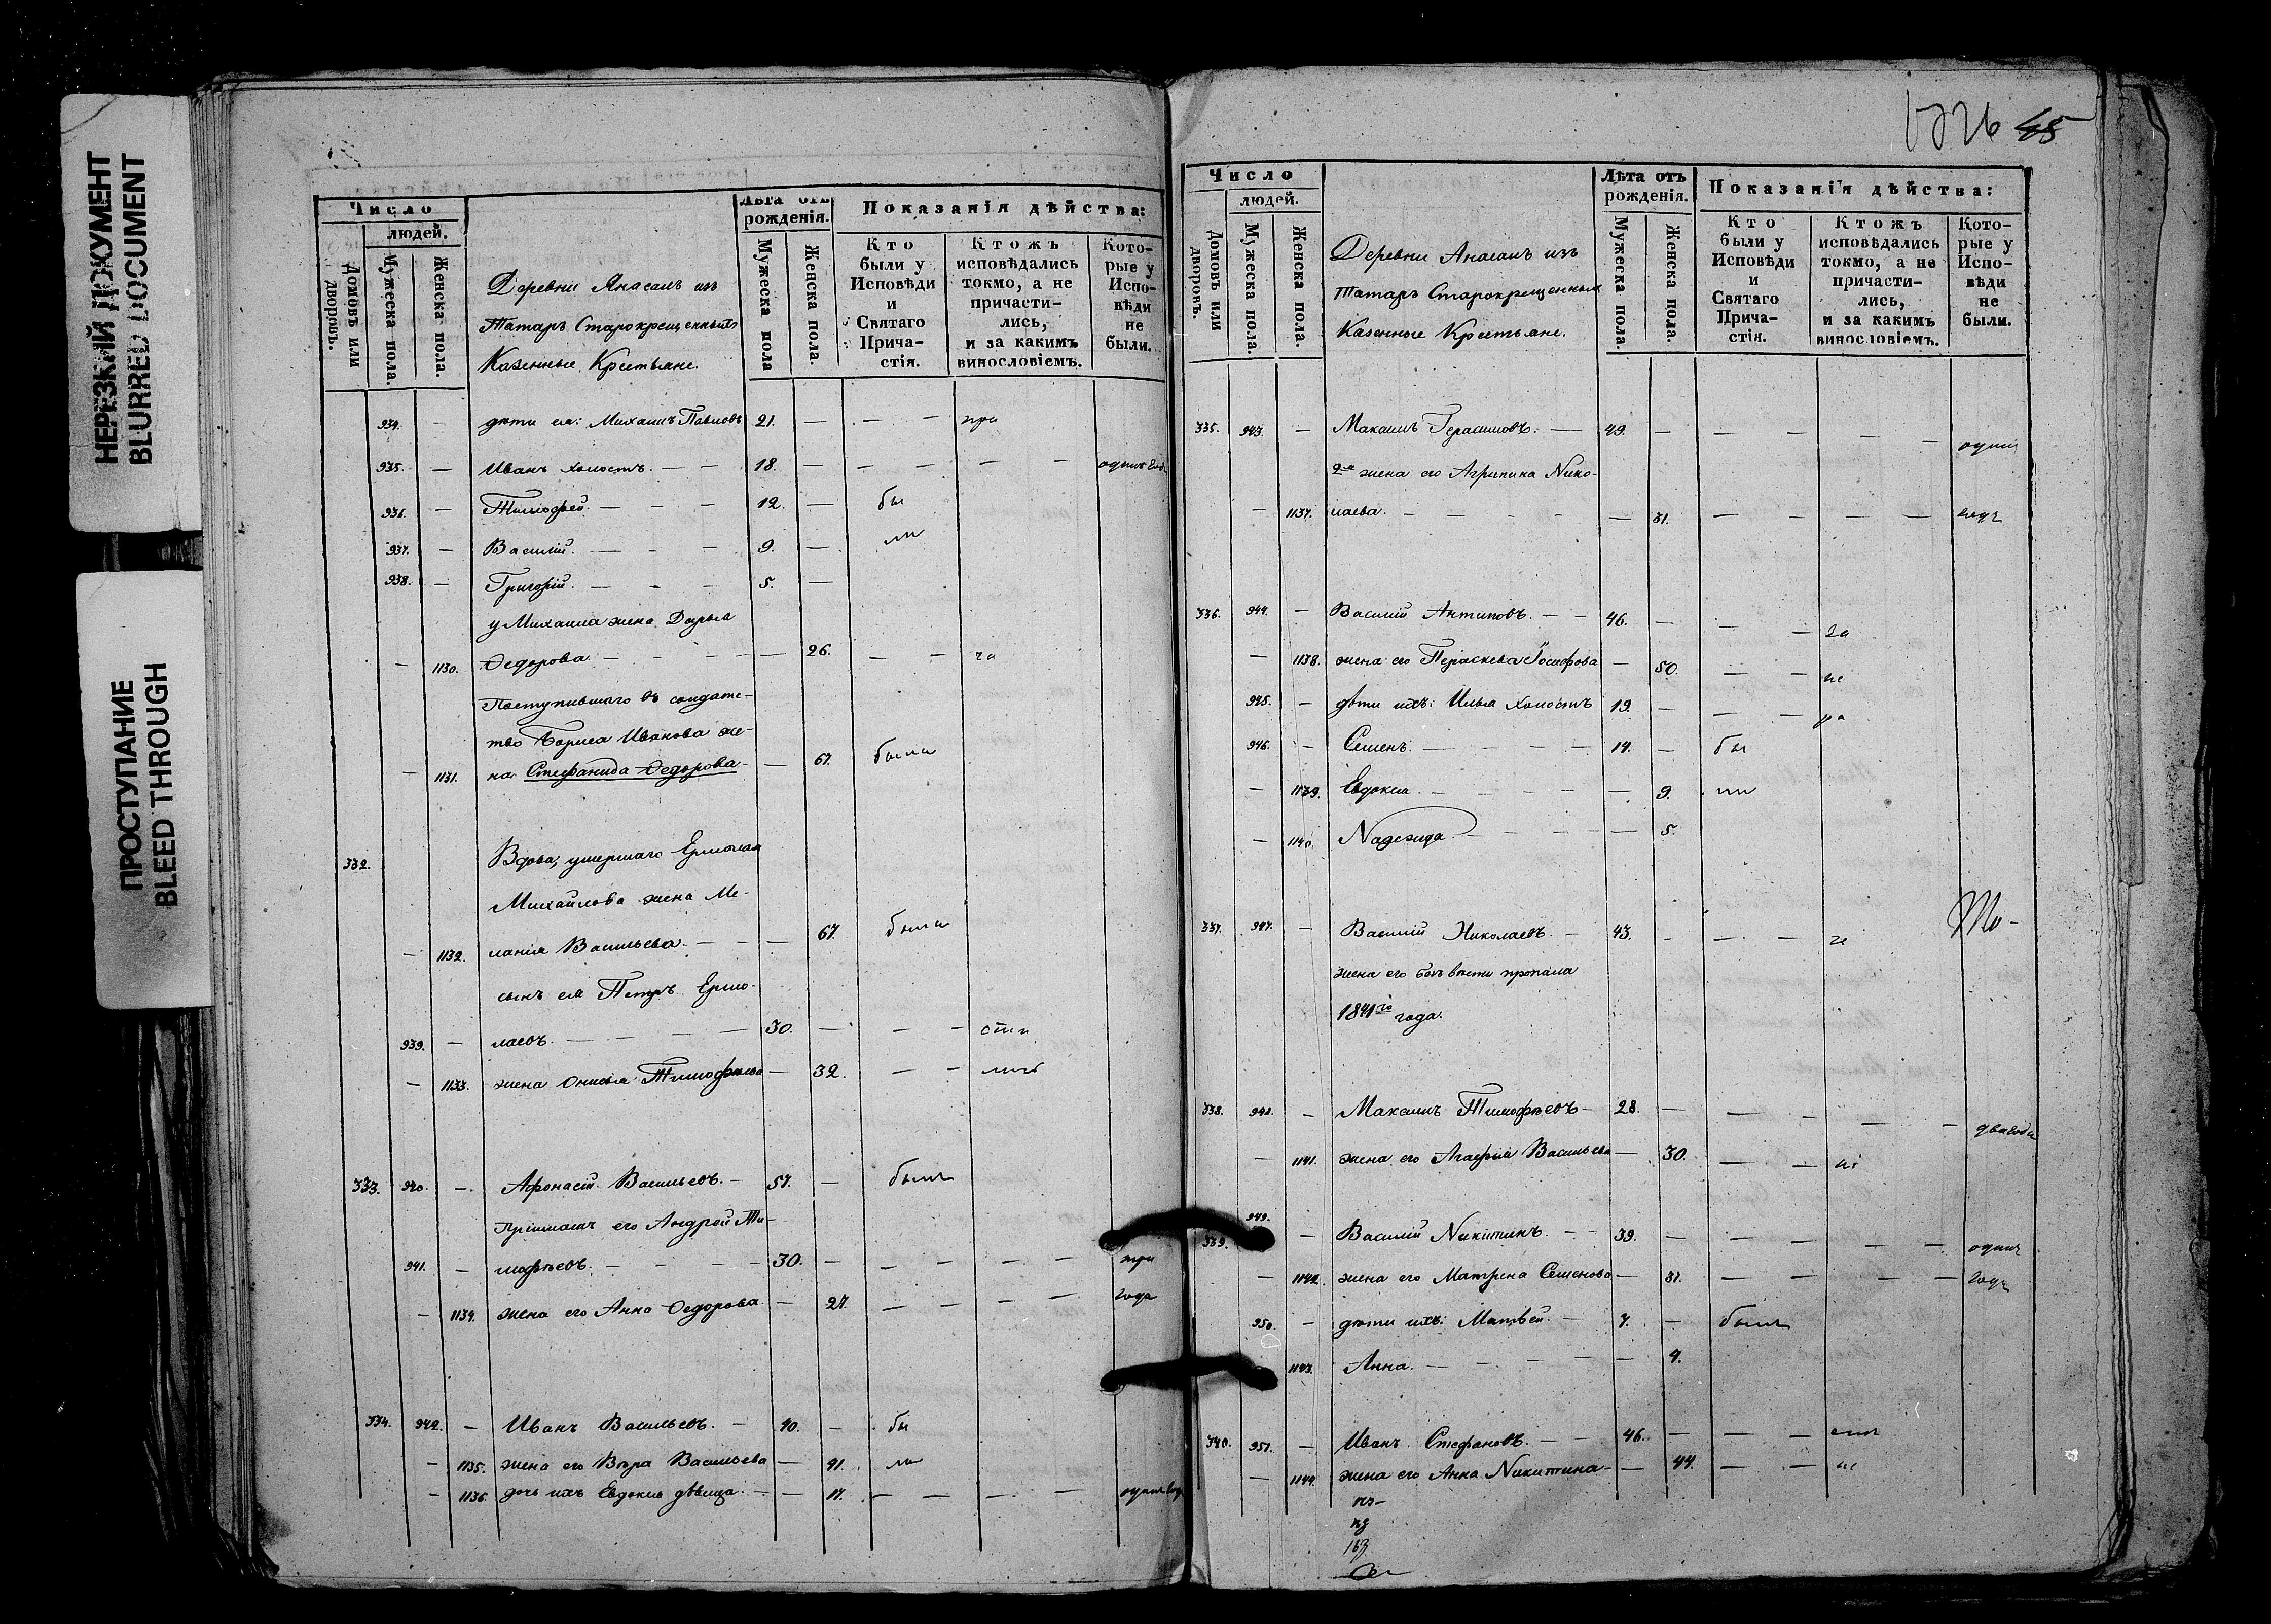 НЕРЕЗКИЙ ДОКУМЕНТ
BLURRED DOCUMENT
ПРОСТУПАНИЕ
BLEED THROUGH
Число
людей.
Домовъ или дворовъ.
Мужеска пола.
Женска пола.
Деревни Янасалъ изъ
Татаръ Старокрещенныхъ
Казенные Крестьяне.
Лѣта отъ
рожденія.
Мужеска пола
Женска пола.
Показанія дѣйства:
Кто
были у
Исповѣди
и
Святаго
Прича-
стія.
Ктожъ
исповѣдались
токмо, а не
причасти-
лись,
и за какимъ
винословіемъ.
Кото-
рые у
Испо-
вѣди
не
были.
934. — дѣти ея: Михаилъ Павловъ 21. — — — при
935. — Иванъ холостъ. — — 18. — — — — — одинъ
936. — Тимофей. — — — 12. — бы
937. — Василій. — — — 9. — ли
938. — Григорій. — — — 5. —
у Михаила жена Дарья
— 1130. Федорова. — — — — 26. — — ча
Поступившаго въ солдатс-
тво Бориса Иванова же-
— 1131. на Стефанида Федорова — 67. была
332. Вдова, умершаго Ермолая
Михайлова жена Ме-
— 1132. лания Васильева. — — — 67. была
сынъ ея Петръ Ермо-
939. — лаевъ. — — — 30. — — —
— 1133. жена Тимофеева — 32. — —
333. 940. — Афонасій Васильевъ. — 57. — былъ
Пріимашъ его Андрей Ти-
941. — мофѣевъ. — — — — 30. — — — — — три
— 1134. жена его Анна Федорова. — 27. — — — — года
334. 942. — Иванъ Васильевъ. — 40. — бы
— 1135. жена его Вѣра Васильева — 41. ли
— 1136. дочь ихъ Евдокия дѣвица. — — 17. — — — —
45
Число
людей.
Домовъ или дворовъ.
Мужеска пола.
Женска пола.
Деревни Янасалъ изъ
Татаръ Старокрещенныхъ
Казенные Крестьяне.
Лѣта отъ
рожденія.
Мужеска пола.
Женска пола.
Показанія дѣйства:
Кто
были у
Исповѣди
и
Святаго
Прича-
стія.
Ктожъ
исповѣдались
токмо, а не
причасти-
лись,
и за какимъ
винословіемъ.
Кото-
рые у
Испо-
вѣди
не
были.
335. 943. — Максимъ Герасимовъ. — 49. — — — — — одинъ
2я жена его Агрипина Нико-
— 1137. лаева. — — — — — 31. — — — — годъ
336. 944. — Василій Антиповъ. — — 46. — — — за
— 1138. жена его Параскева Іосифова — 50. — — не
945. — дѣти ихъ: Илья холостъ 19. — — — ра
946. — Семенъ. — — — — 14. — бы
— 1139. Евдокия. — — — — — 9. ли
— 1140. Надежда — — — — — 5.
337. 947. — Василій Николаевъ. — 43. — — —
жена его безъ вѣсти пропала
1841го года.
338. 948. — Максимъ Тимофѣевъ — 28. — — — — — два года
— 1141. жена его Агафия Васильева — 30. — —
339. 949. — Василій Никитинъ. — — 39. — — — — — одинъ
— 1142. жена его Матрена Семенова — 37. — — — — годъ
950. — дѣти ихъ: Матвѣй. — 7. — были
1143. Анна. — — — — — 4.
340. 951. — Иванъ Стефановъ. — — 46. — — —
— 1144. жена его Анна Никитина — — 44. — — не